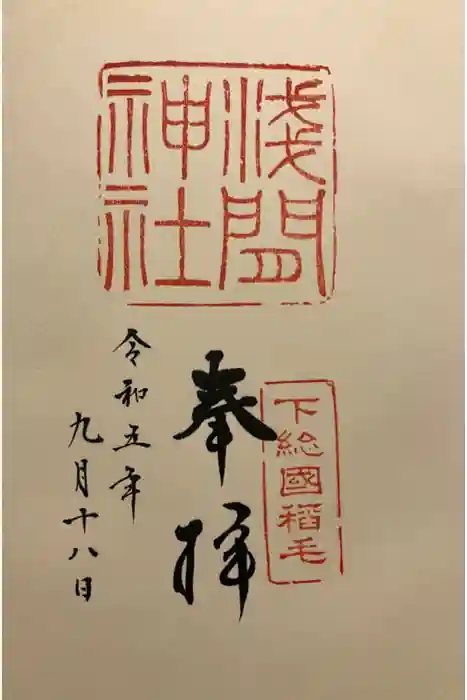 淺間
神社
下総國稻毛
奉拝
令和五年
九月十八日